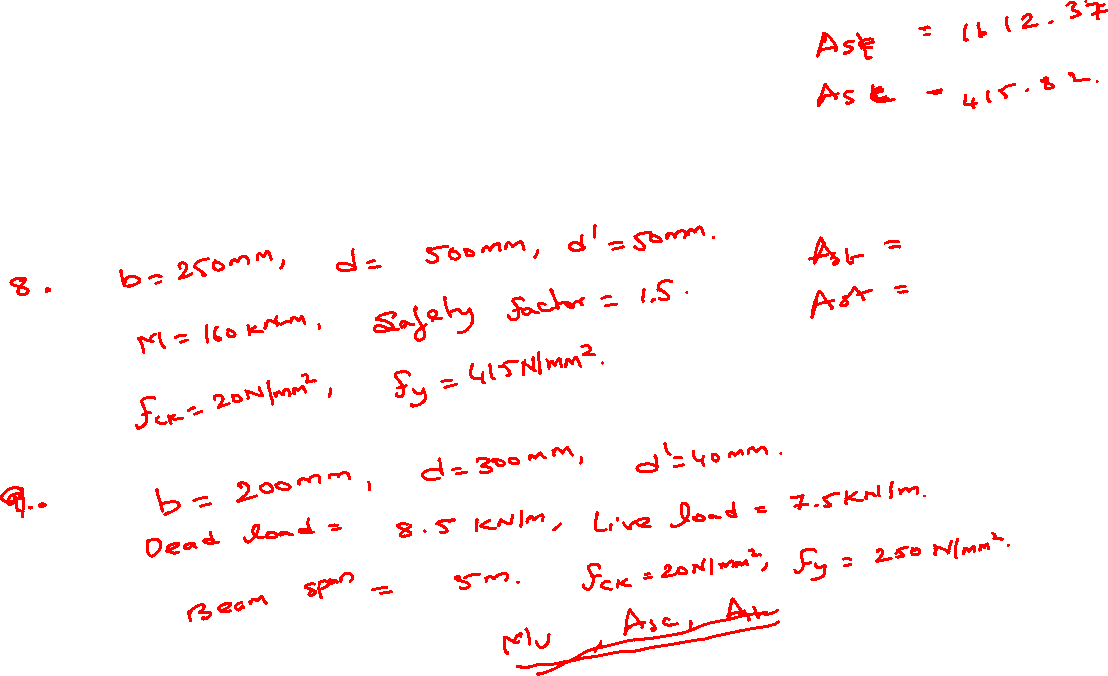 Ast = 1612.37
Asc = 415.82.
8. b = 250mm, d = 500mm, d' = 50mm.
Ast =
M = 160 kNm, Safety factor = 1.5.
fck = 20N/mm², fy = 415N/mm².
9. b = 200mm, d = 300mm, d' = 40mm.
Dead load = 8.5 KN/m, Live load = 7.5KN/m.
Beam span = 5m. fck = 20N/mm², fy = 250 N/mm².
Mu, Asc, Ast